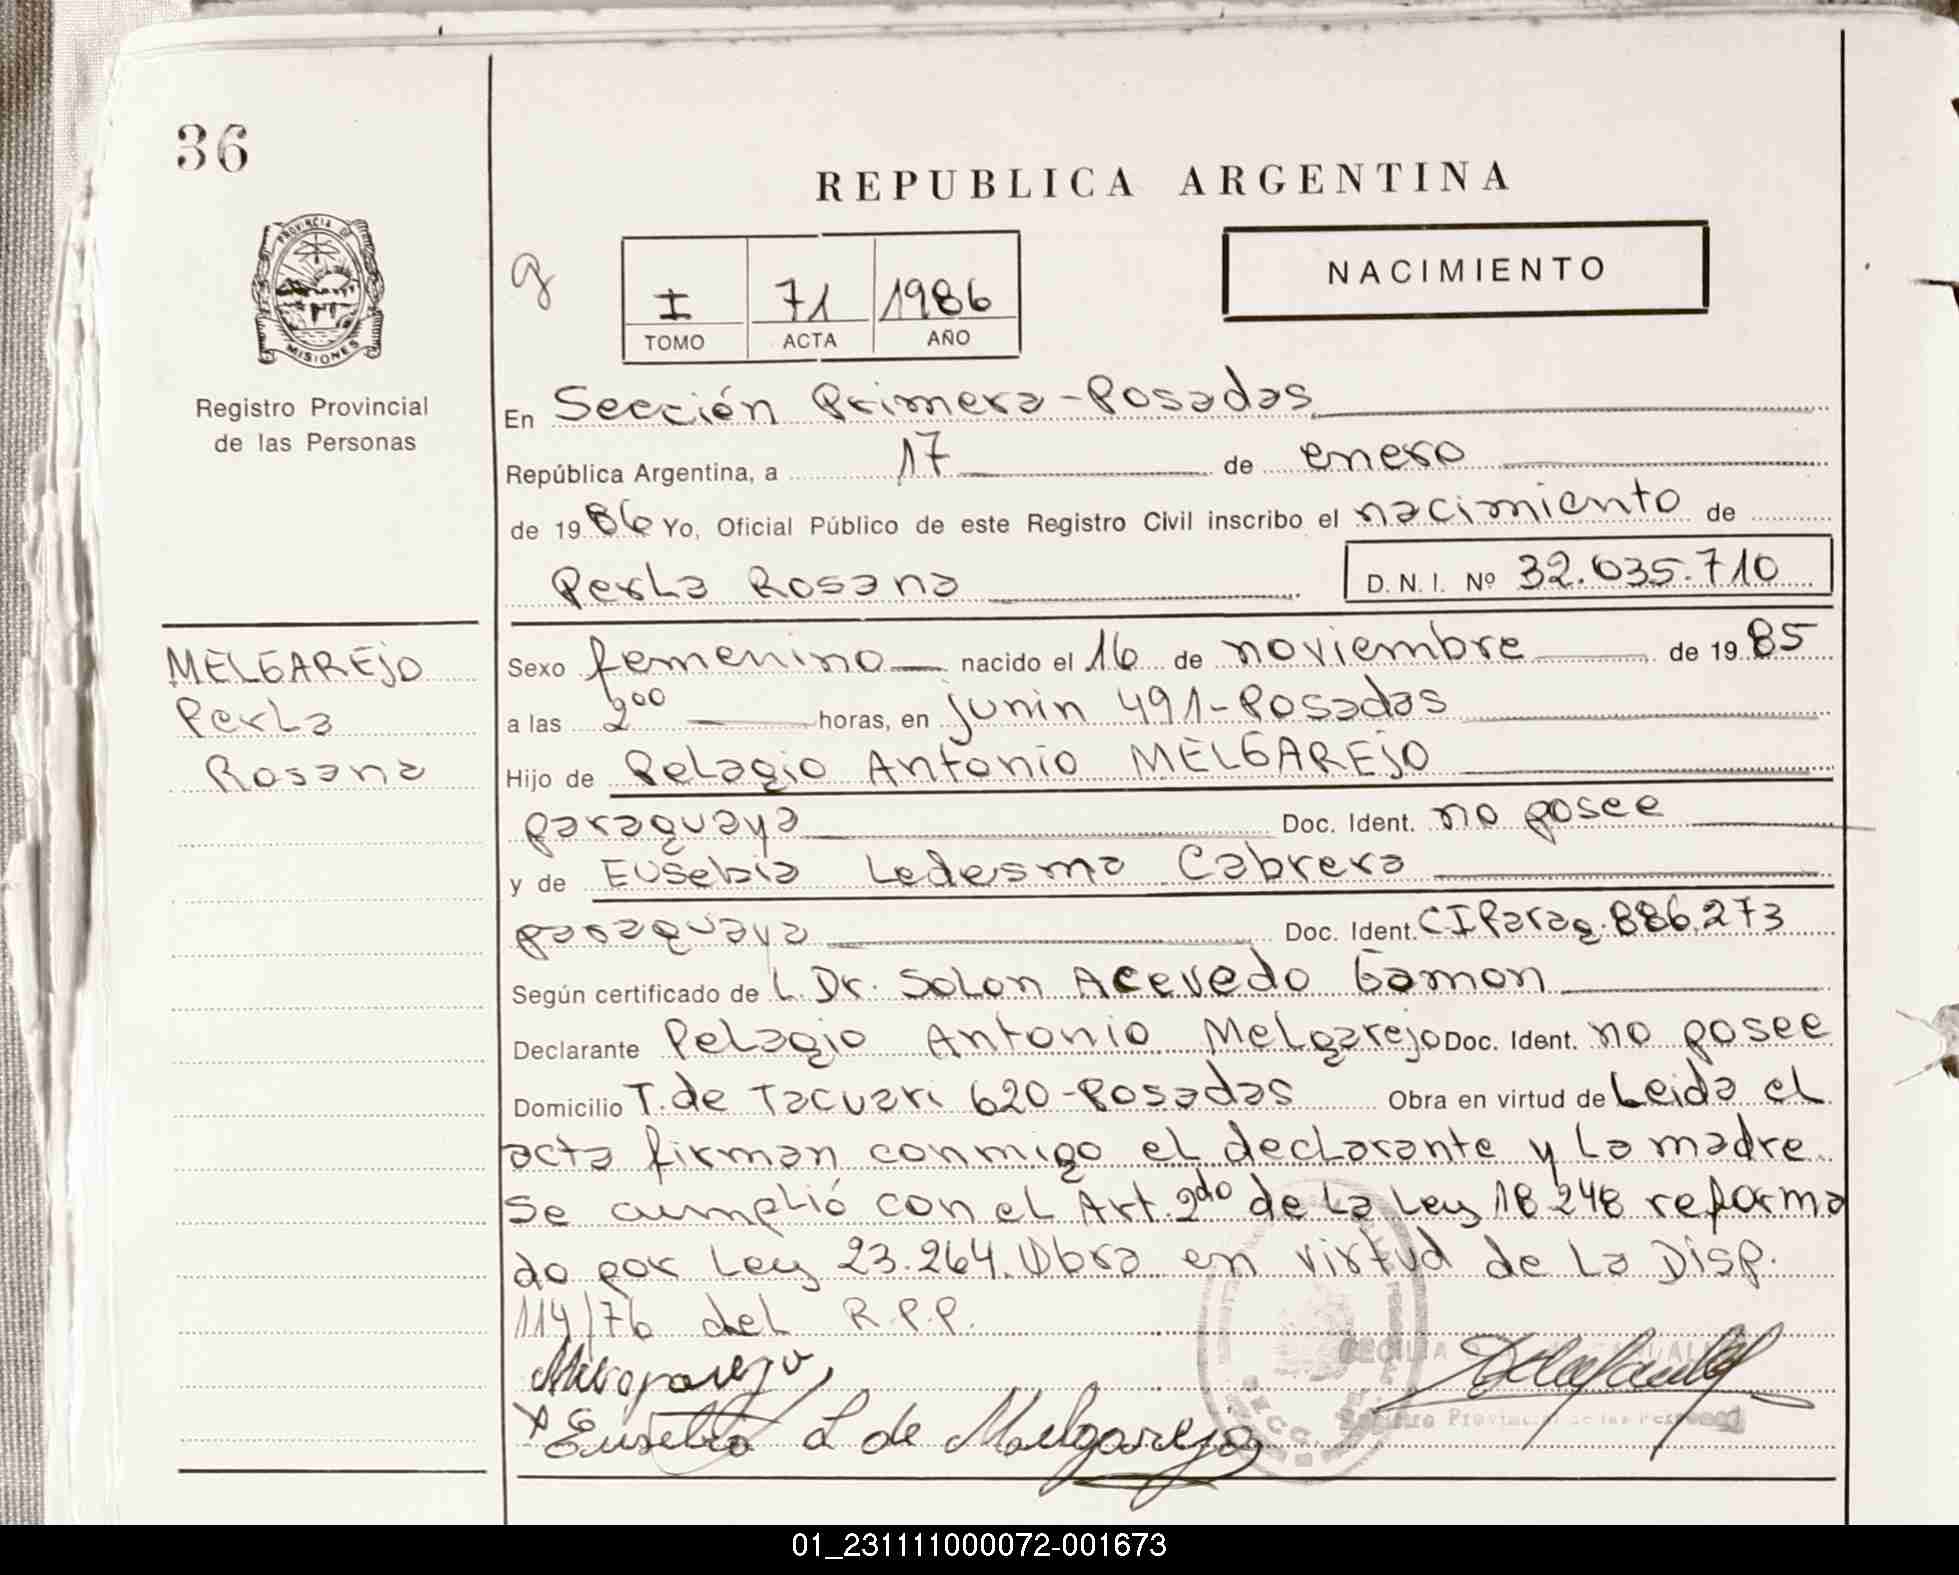 36
REPUBLICA ARGENTINA
PROVINCIA DE
MISIONES
Registro Provincial
de las Personas
I 71 1986
TOMO ACTA AÑO
NACIMIENTO
En Sección Primera-Posadas
República Argentina, a 17 de enero
de 1986 Yo, Oficial Público de este Registro Civil inscribo el nacimiento de
Perla Rosana D. N. I. Nº 32.035.710
MELGAREJO
Perla
Rosana
Sexo femenino nacido el 16 de noviembre de 1985
a las 2⁰⁰ horas, en junin 491-Posadas
Hijo de Pelagio Antonio MELGAREJO
paraguaya Doc. Ident. no posee
y de Eusebia Ledesma Cabrera
paraguaya Doc. Ident. CIParag.886.273
Según certificado de L Dr. Solon Acevedo Gamon
Declarante Pelagio Antonio Melgarejo Doc. Ident. no posee
Domicilio T. de Tacuari 620-Posadas Obra en virtud de Leida el
acta firman conmigo el declarante y la madre
se cumplió con el Art. 2do de la Ley 18248 reforma
do por Ley 23.264. Obra en virtud de la Disp.
114/76 del R.P.P.
Eusebia L de Melgarejo
Registro Provincial de las Personas
01_231111000072-001673